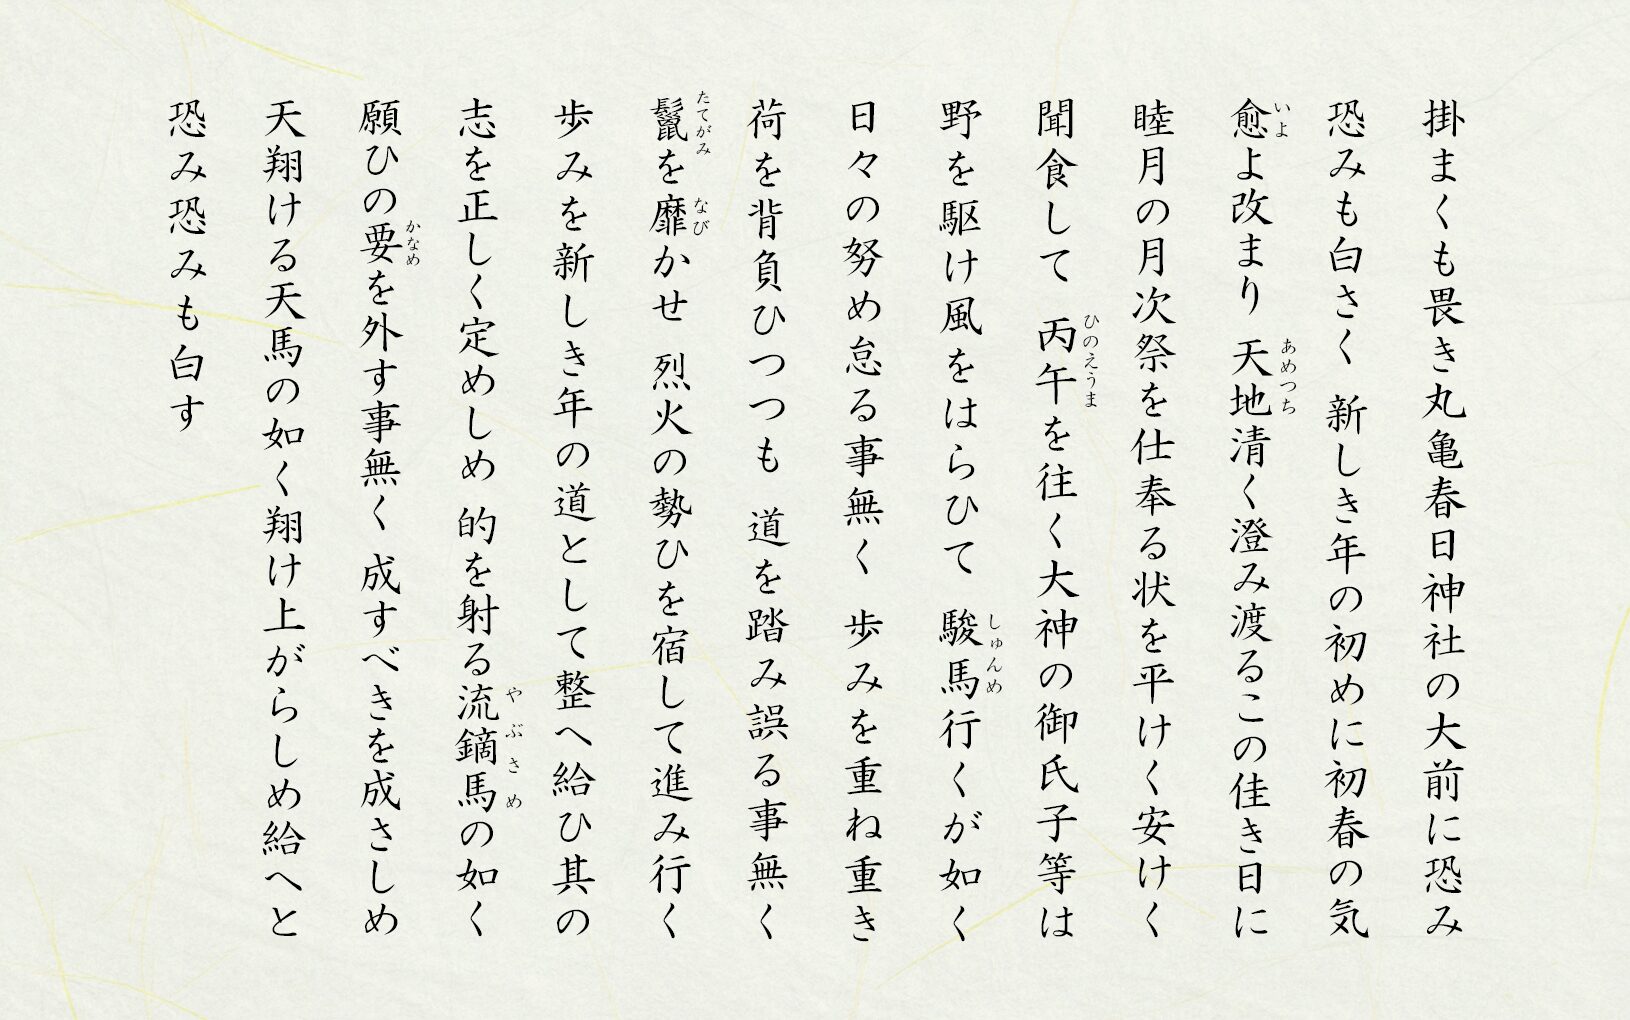 掛まくも畏き丸亀春日神社の大前に恐み
恐みも白さく 新しき年の初めに初春の気
愈よ改まり 天地清く澄み渡るこの佳き日に
睦月の月次祭を仕奉る状を平けく安けく
聞食して 丙午を往く大神の御氏子等は
野を駆け風をはらひて 駿馬行くが如く
日々の努め怠る事無く 歩みを重ね重き
荷を背負ひつつも 道を踏み誤る事無く
鬣を靡かせ 烈火の勢ひを宿して進み行く
歩みを新しき年の道として整へ給ひ其の
志を正しく定めしめ 的を射る流鏑馬の如く
願ひの要を外す事無く 成すべきを成さしめ
天翔ける天馬の如く翔け上がらしめ給へと
恐み恐みも白す
いよ
あめつち
ひのえうま
しゅんめ
たてがみ
なび
やぶさめ
かなめ